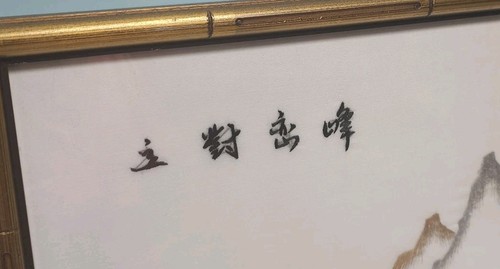 峰峦對立